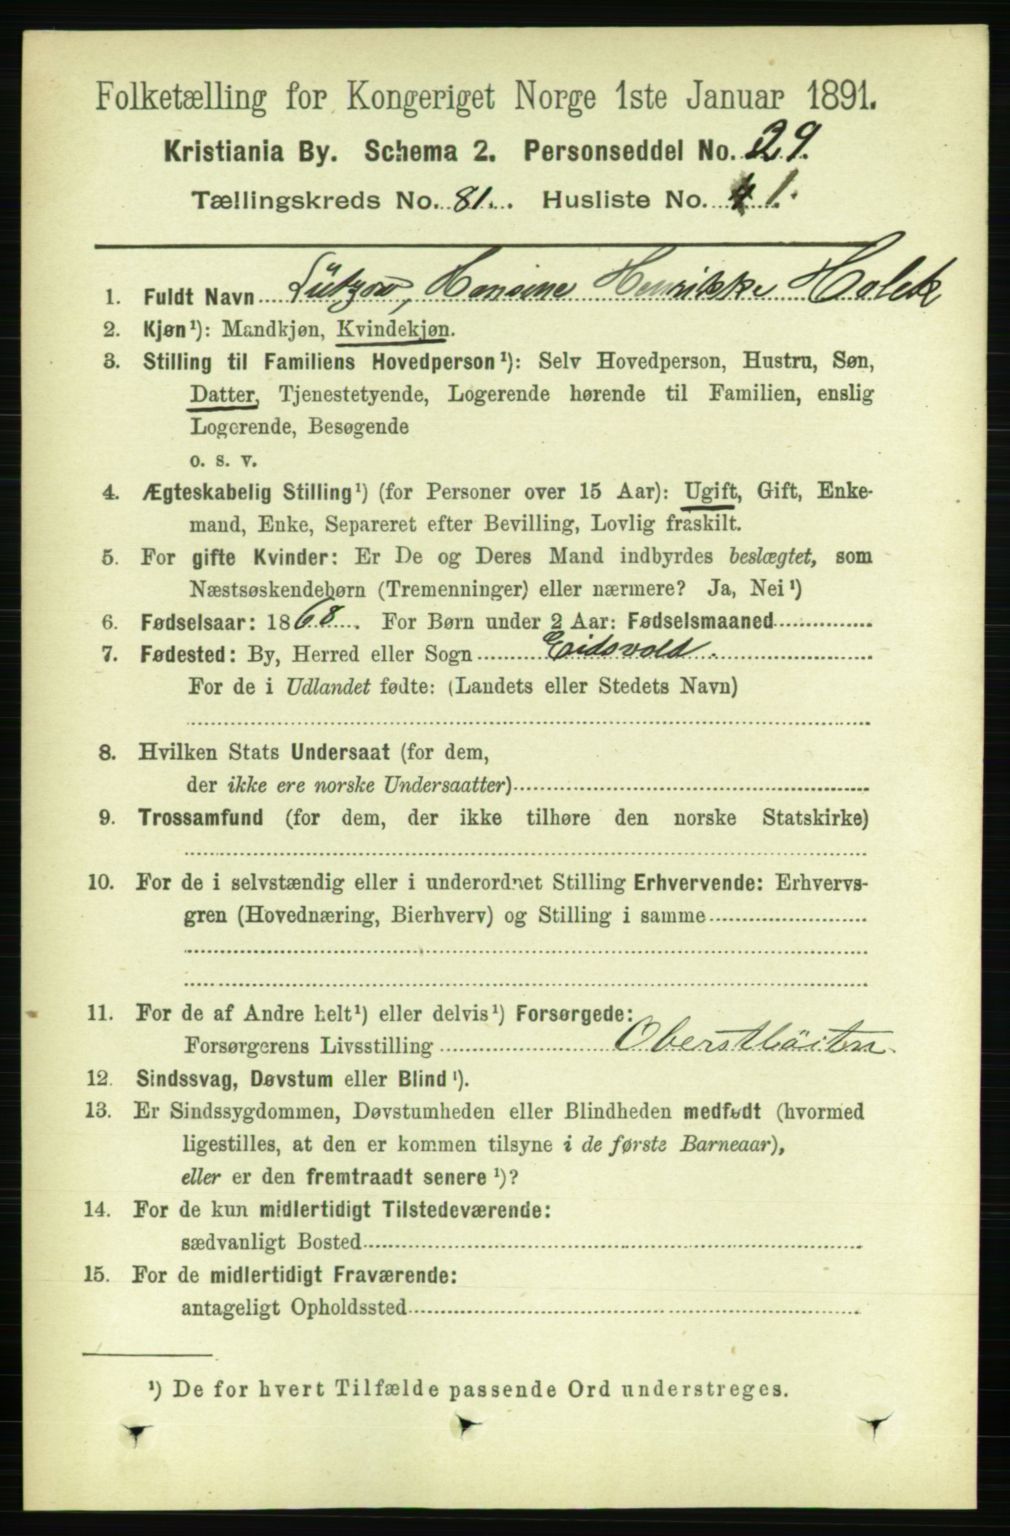 Folketælling for Kongeriget Norge 1ste Januar 1891.
Kristiania By. Schema 2. Personseddel No. 29.
Tællingskreds No. 81. Husliste No. 1.
1. Fuldt Navn Lützow, Hansine Henrikke Holck
2. Kjøn¹): Mandkjøn, Kvindekjøn.
3. Stilling til Familiens Hovedperson¹): Selv Hovedperson, Hustru, Søn,
Datter, Tjenestetyende, Logerende hørende til Familien, enslig
Logerende, Besøgende
o. s. v.
4. Ægteskabelig Stilling¹) (for Personer over 15 Aar): Ugift, Gift, Enke-
mand, Enke, Separeret efter Bevilling, Lovlig fraskilt.
5. For gifte Kvinder: Er De og Deres Mand indbyrdes beslægtet, som
Næstsøskendebørn (Tremenninger) eller nærmere? Ja, Nei¹)
6. Fødselsaar: 1868. For Børn under 2 Aar: Fødselsmaaned
7. Fødested: By, Herred eller Sogn Eidsvold.
For de i Udlandet fødte: (Landets eller Stedets Navn)
8. Hvilken Stats Undersaat (for dem,
der ikke ere norske Undersaatter)
9. Trossamfund (for dem, der ikke tilhøre den norske Statskirke)
10. For de i selvstændig eller i underordnet Stilling Erhvervende: Erhvervs-
gren (Hovednæring, Bierhverv) og Stilling i samme
11. For de af Andre helt¹) eller delvis¹) Forsørgede:
Forsørgerens Livsstilling Oberstløitn.
12. Sindssvag, Døvstum eller Blind¹).
13. Er Sindssygdommen, Døvstumheden eller Blindheden medfødt (hvormed
ligestilles, at den er kommen tilsyne i de første Barneaar),
eller er den fremtraadt senere¹)?
14. For de kun midlertidigt Tilstedeværende:
sædvanligt Bosted
15. For de midlertidigt Fraværende:
antageligt Opholdssted
¹) De for hvert Tilfælde passende Ord understreges.